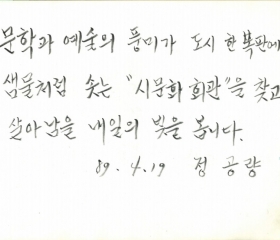 문학과 예술의 풍미가 도시 한복판에
샘물처럼 솟는 "시문화 회관"을 찾고
살아남을 내일의 빛을 봅니다.
89. 4. 19 정 공량